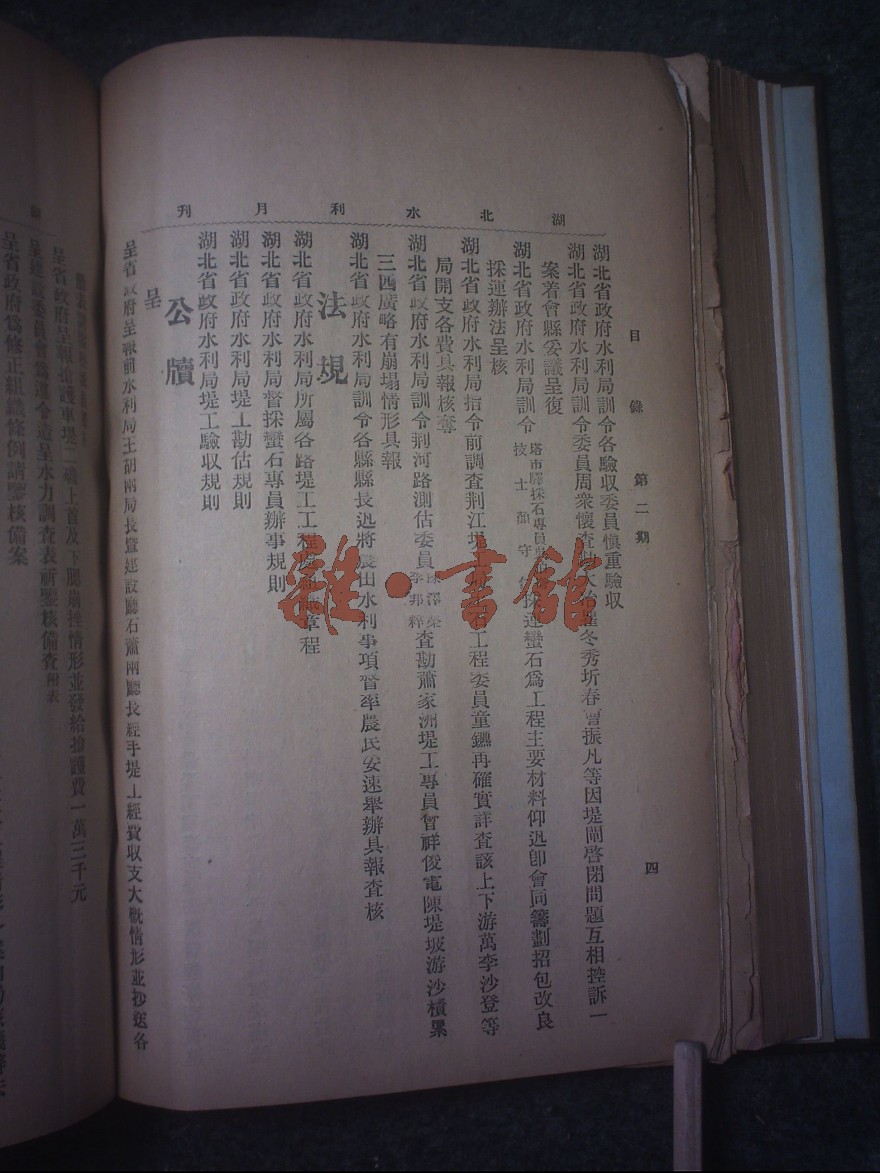 湖北水利月刊
目錄 第二期 四
湖北省政府水利局訓令各驗收委員愼重驗收
湖北省政府水利局訓令委員周衆懷查 大冶 冬秀圻春 振凡等因堤閘啓閉問題互相控訴一
案着會縣妥議呈復
湖北省政府水利局訓令 塔市驛採石專員
技士顏守 採運蠻石爲工程主要材料仰迅卽會同籌劃招包改良
採運辦法呈核
湖北省政府水利局指令前調查荆江堤 工程委員童 再確實詳查該上下游萬李沙登等
局開支各費具報核奪
湖北省政府水利局訓令荆河路測估委員 澤
李邦 查勘蕭家洲堤工專員 祥俊電陳堤坡游沙積累
三四廣略有崩塌情形具報
湖北省政府水利局訓令各縣縣長迅將農田水利事項督率農民妥速舉辦具報查核
法規
湖北省政府水利局所屬各路堤工工程 章程
湖北省政府水利局督採蠻石專員辦事規則
湖北省政府水利局堤工勘估規則
湖北省政府水利局堤工驗收規則
公牘
呈
呈省政府呈報前水利局王胡兩局長暨建設廳石蕭兩廳長經手堤工經費收支大概情形並抄送各
呈省政府 護車堤二磯上首及下腮崩挫情形並發給搶護費一萬三千元
呈建設委員會爲遵令造呈水力調查表祈鑒核備查附表
呈省政府爲修正組織條例請鑒核備案
雜·書館